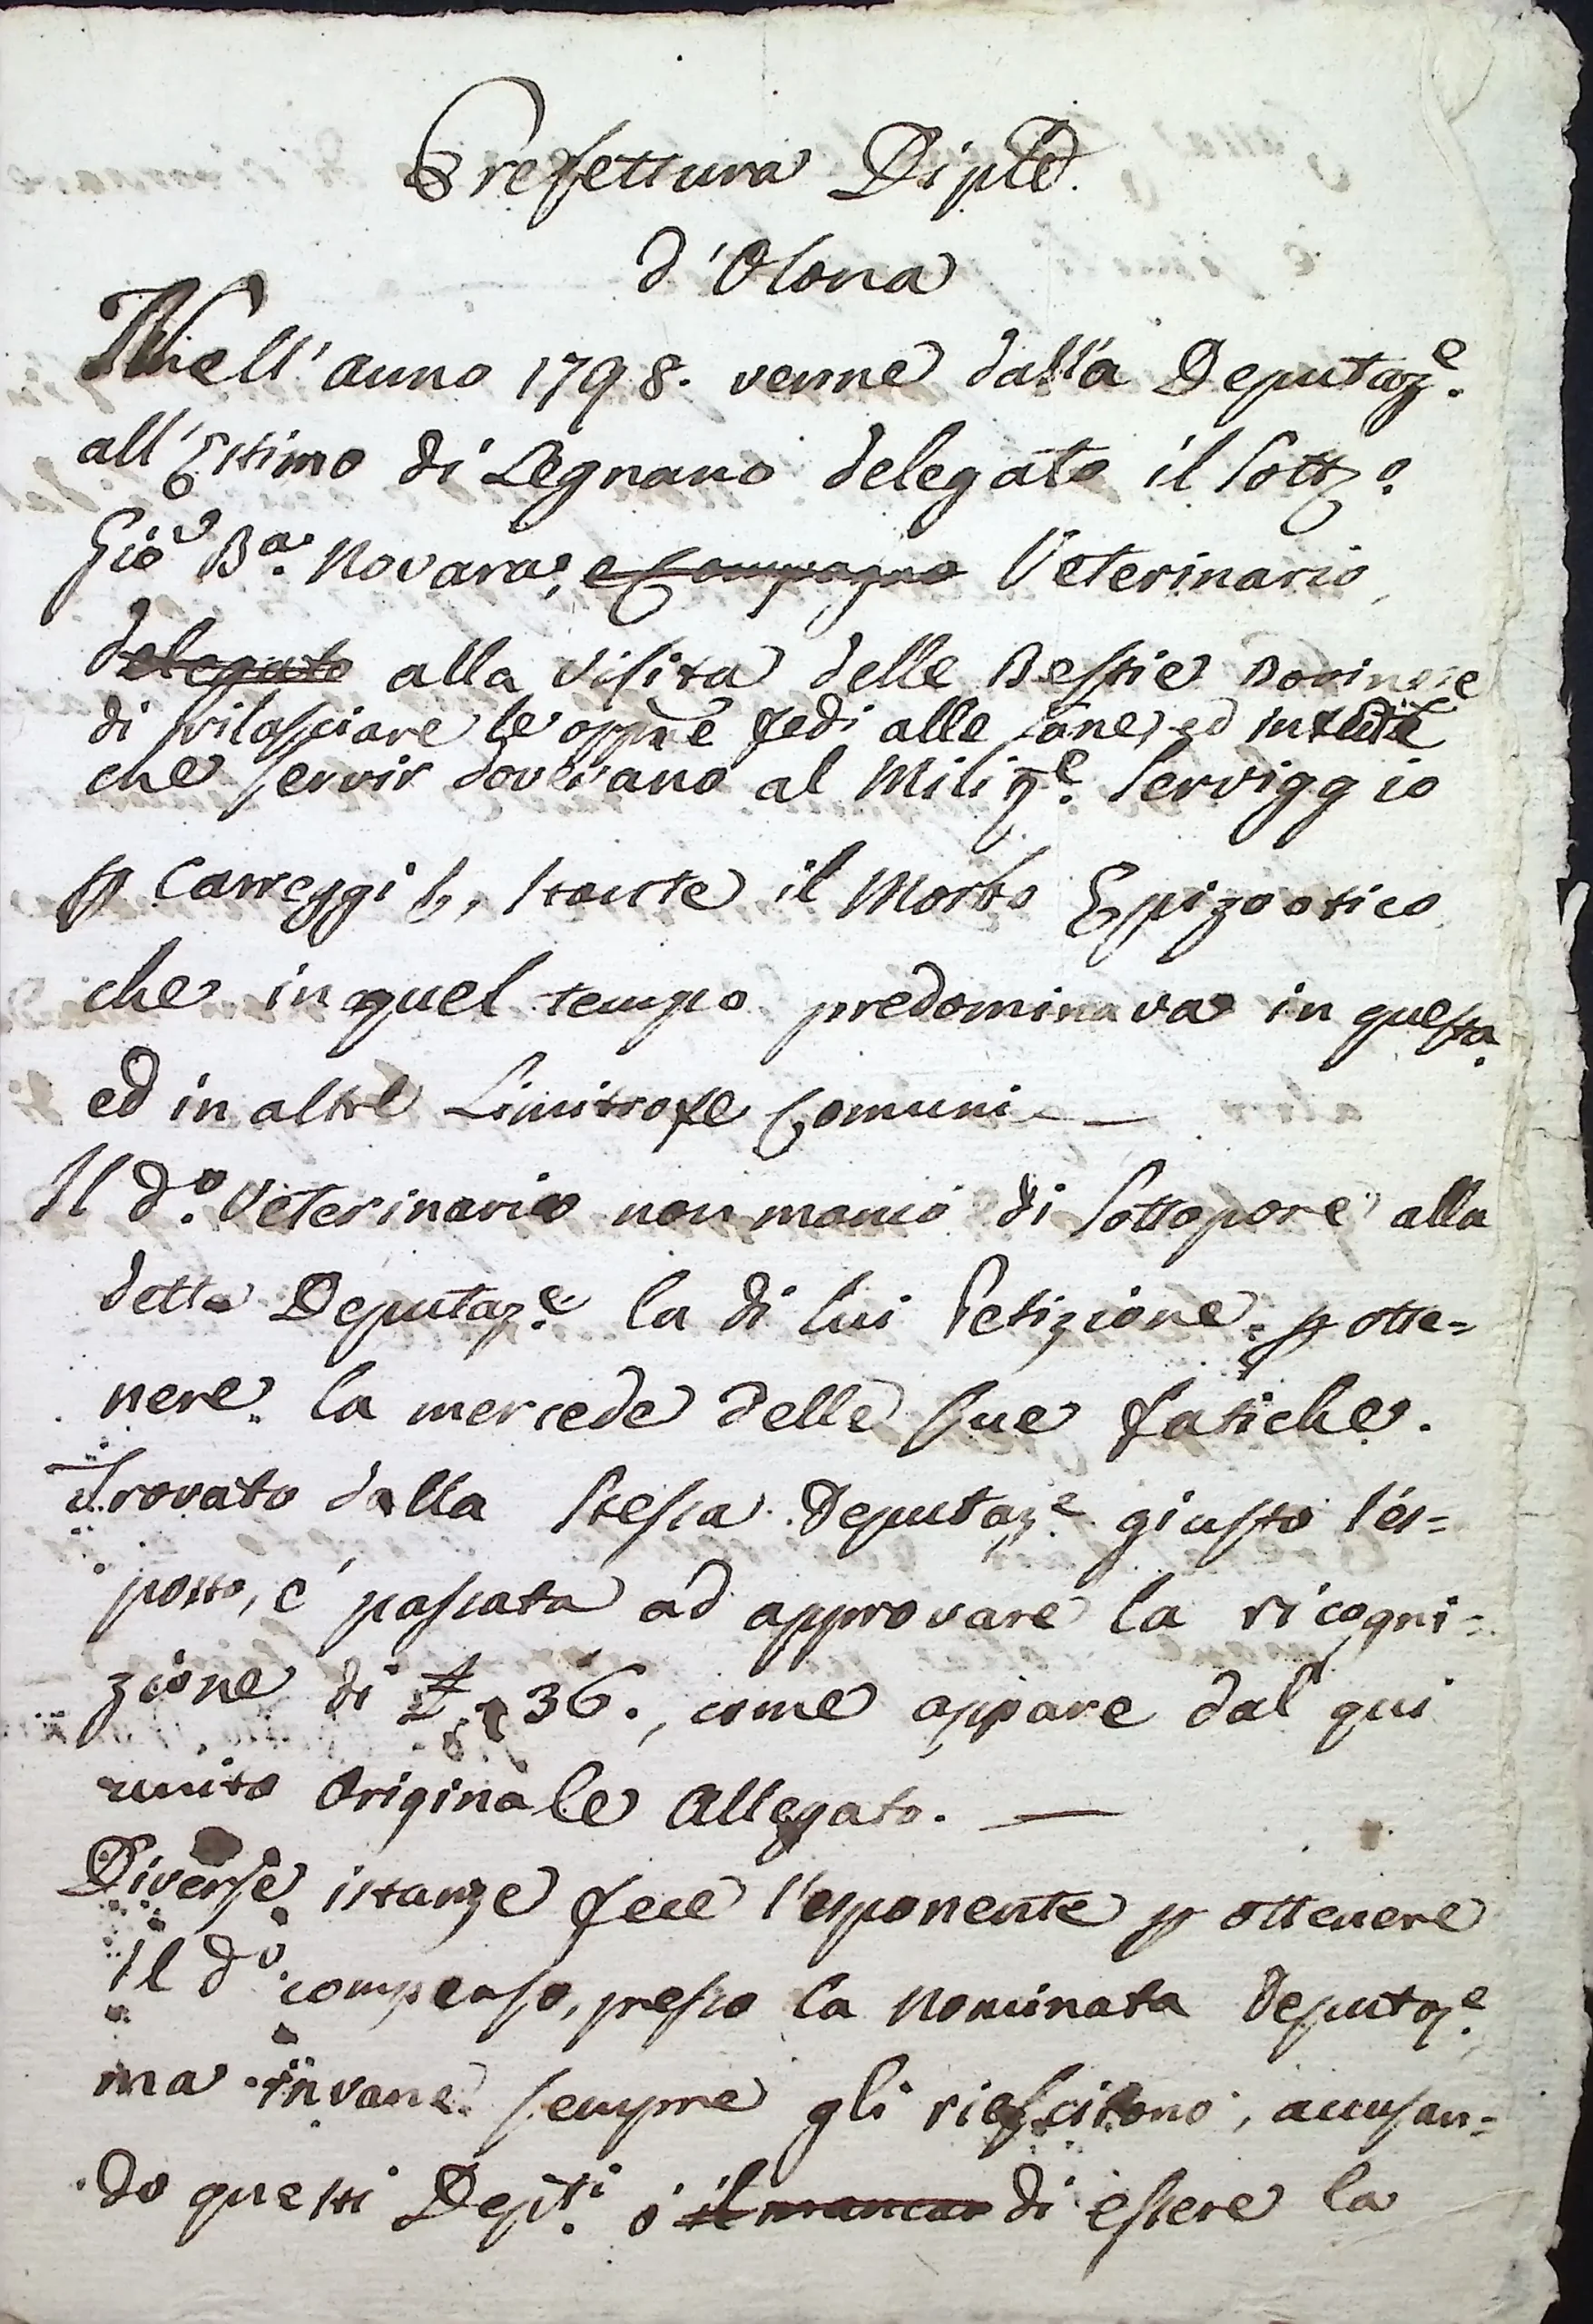 Prefettura Diple.
d'Olona
Nell'anno 1798. venne dalla Deputaz.e
all'Estimo di Legnano delegato il Sott.o
Gio Ba. Novara, e Compagno Veterinario,
delegato alla visita delle Bestie Bovine, e
di rilasciare le oppne fedi alle sane, ed infette
che servir dovevano al Milit.e Serviggio
p Carreggi &, stante il Morbo Epizootico
che in quel tempo predominava in questa
ed in altre Limitrofe Comuni —
Il d.o Veterinario non mancò di sottopore alla
detta Deputaz.e la di lui Petizione p otte=
nere la mercede delle sue fatiche.
Trovato dalla stessa Deputaz.e giusto l'es=
posto, è passata ad approvare la ricogni=
zione di 36., come appare dal qui
unito Originale Allegato. —
Diverse istanze fece l'esponente p ottenere
il d.o compenso, presso la nominata Deputaz.e
ma invane sempre gli riescirono, accusan=
do questi Dep.ti ò il mancar di essere la